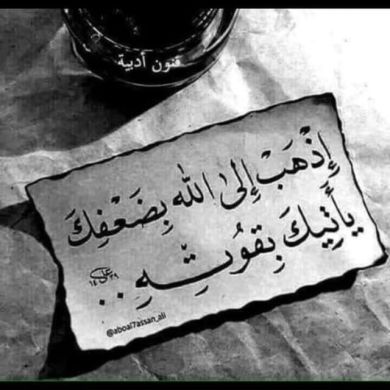 فنون أدبية
إِذْهَبْ إِلى الله بِضَعْفِكَ
يَأتِيكَ بِقوُتِّهِ..
@aboal7assan_ali